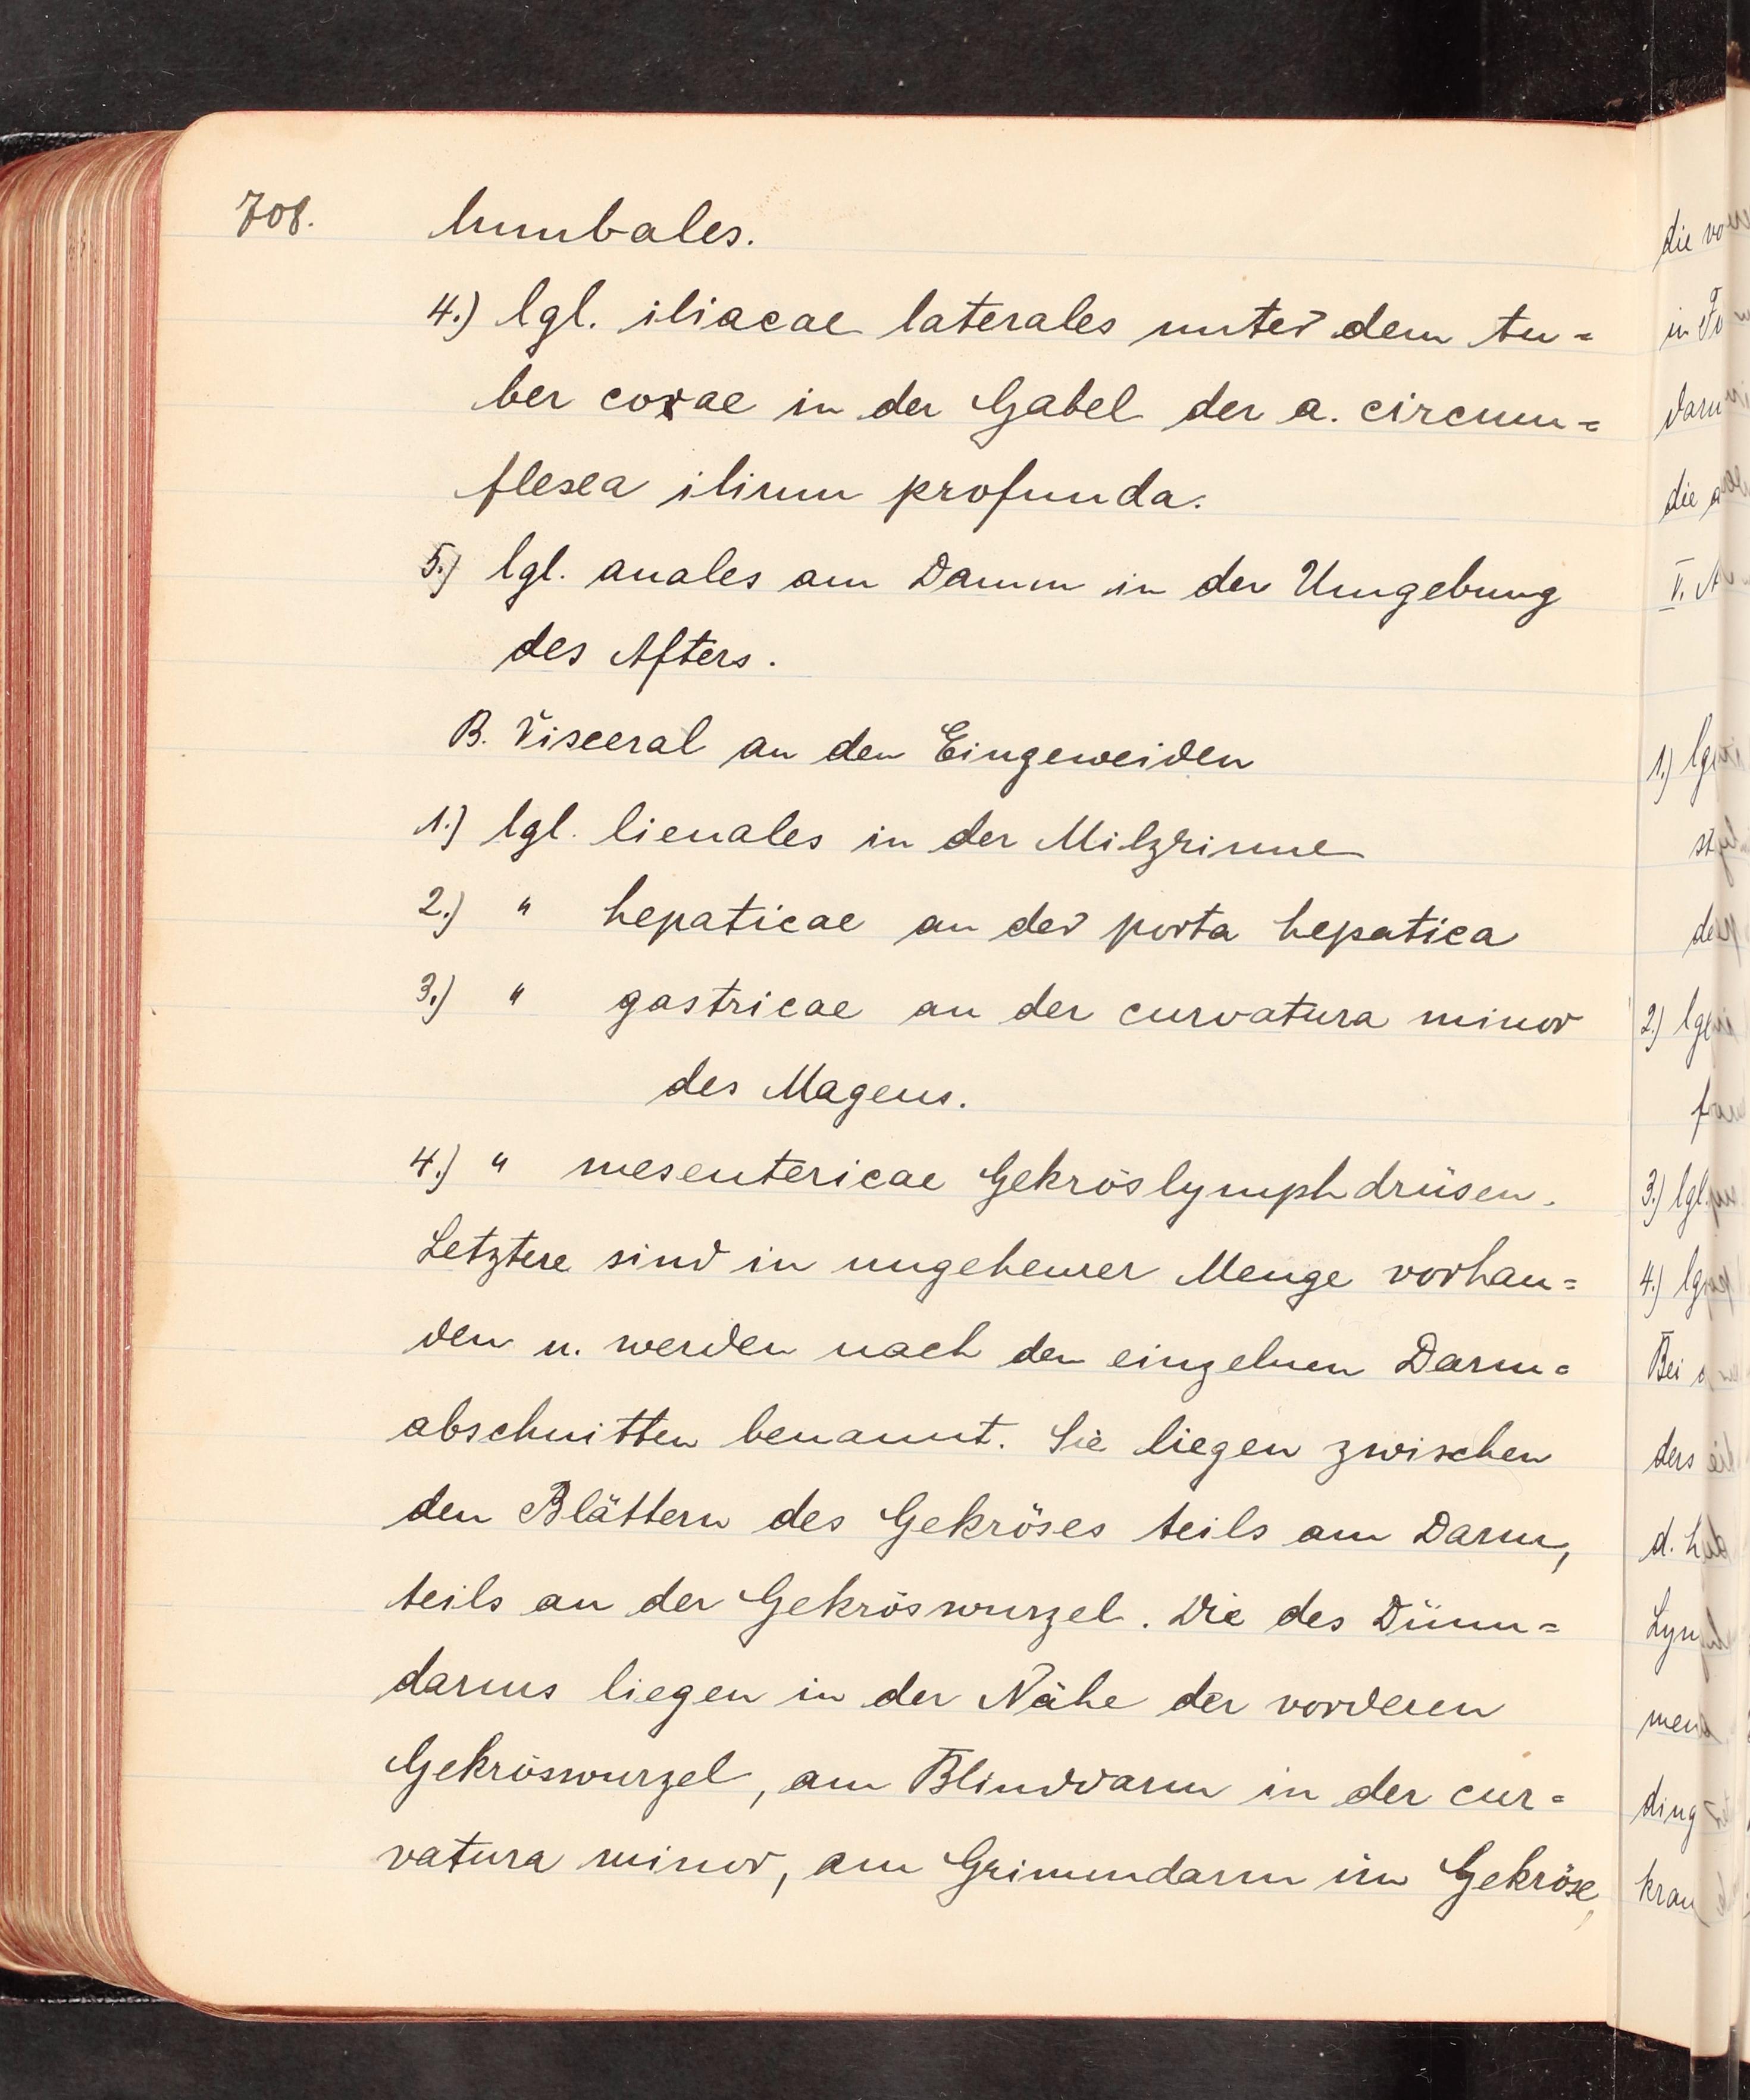 708.
lumbales.
4.) lgl. iliacae laterales unter dem tu=
ber coxae in der Gabel der a. circum=
flexea ilium profunda.
5.) lgl. anales am Damm in der Umgebung
des Afters.
B. Visceral an den Eingeweiden
1.) lgl. lienales in der Milzrinne
2.) " hepaticae an der porta hepatica
3.) " gastricae an der curvatura minor
des Magens.
4.) " mesentericae Gekröslymphdrüsen.
Letztere sind in ungeheurer Menge vorhan=
den u. werden nach den einzelnen Darm=
abschnitten benannt. Sie liegen zwischen
den Blättern des Gekröses teils am Darm,
teils an der Gekröswurzel. Die des Dünn=
darms liegen in der Nähe der vorderen
Gekröswurzel, am Blinddarm in der cur=
vatura minor, am Grimmdarm im Gekröse,
die vo
in Fo
darm
die a
V. A
1.) lgl
st
de
2.) lgl
f
3.) lgl.
4.) lg
Bei
ders
d. h
Lym
men
ding
kran